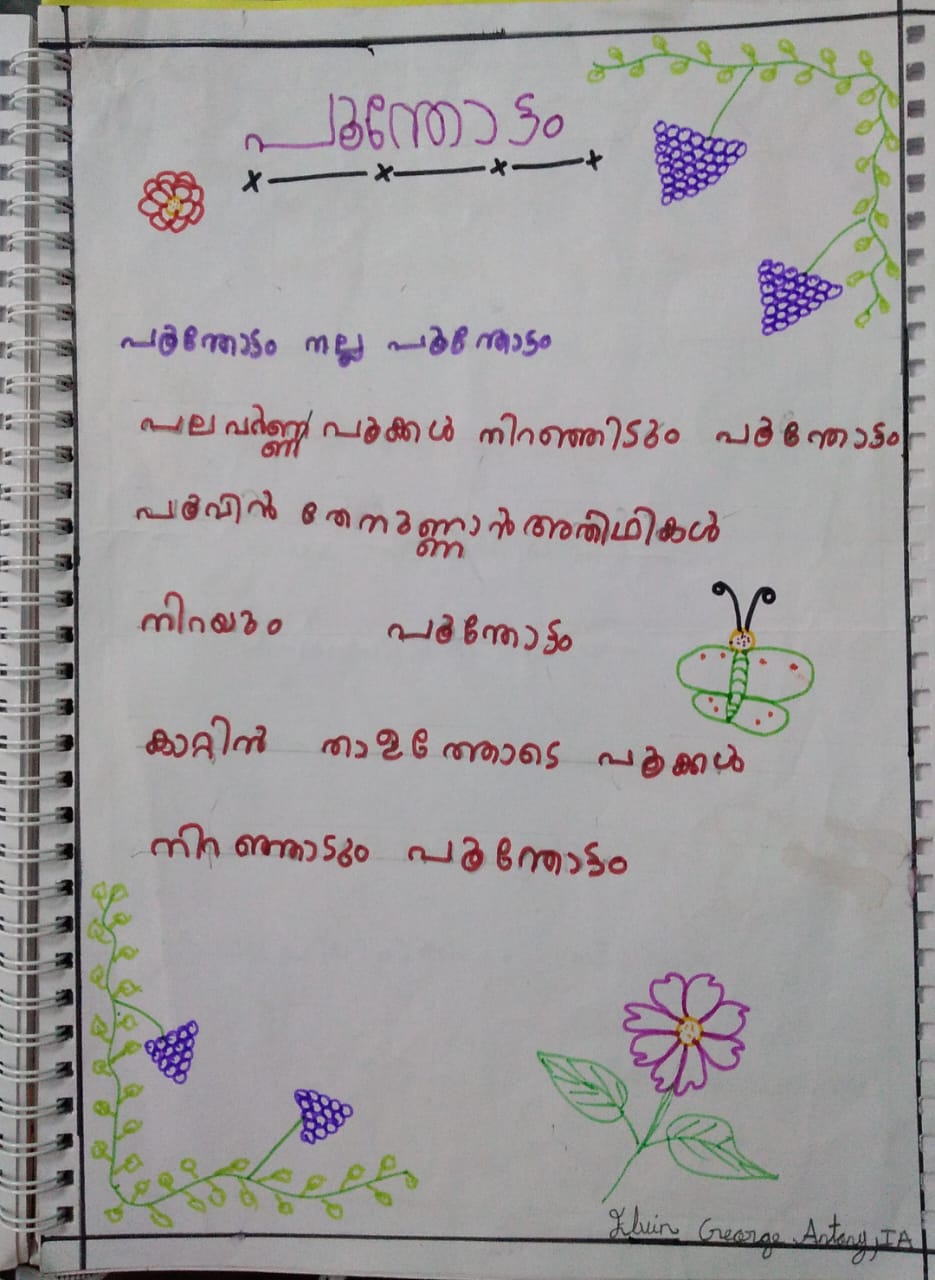 പൂന്തോട്ടം
പൂന്തോട്ടം നല്ല പൂന്തോട്ടം
പലവർണ്ണ പൂക്കൾ നിറഞ്ഞിടും പൂന്തോട്ടം
പൂവിൻ തേനുണ്ണാൻ അതിഥികൾ
നിറയും പൂന്തോട്ടം
കാറ്റിൻ താളത്തോടെ പൂക്കൾ
നിറഞ്ഞാടും പൂന്തോട്ടം
George Antony, IA